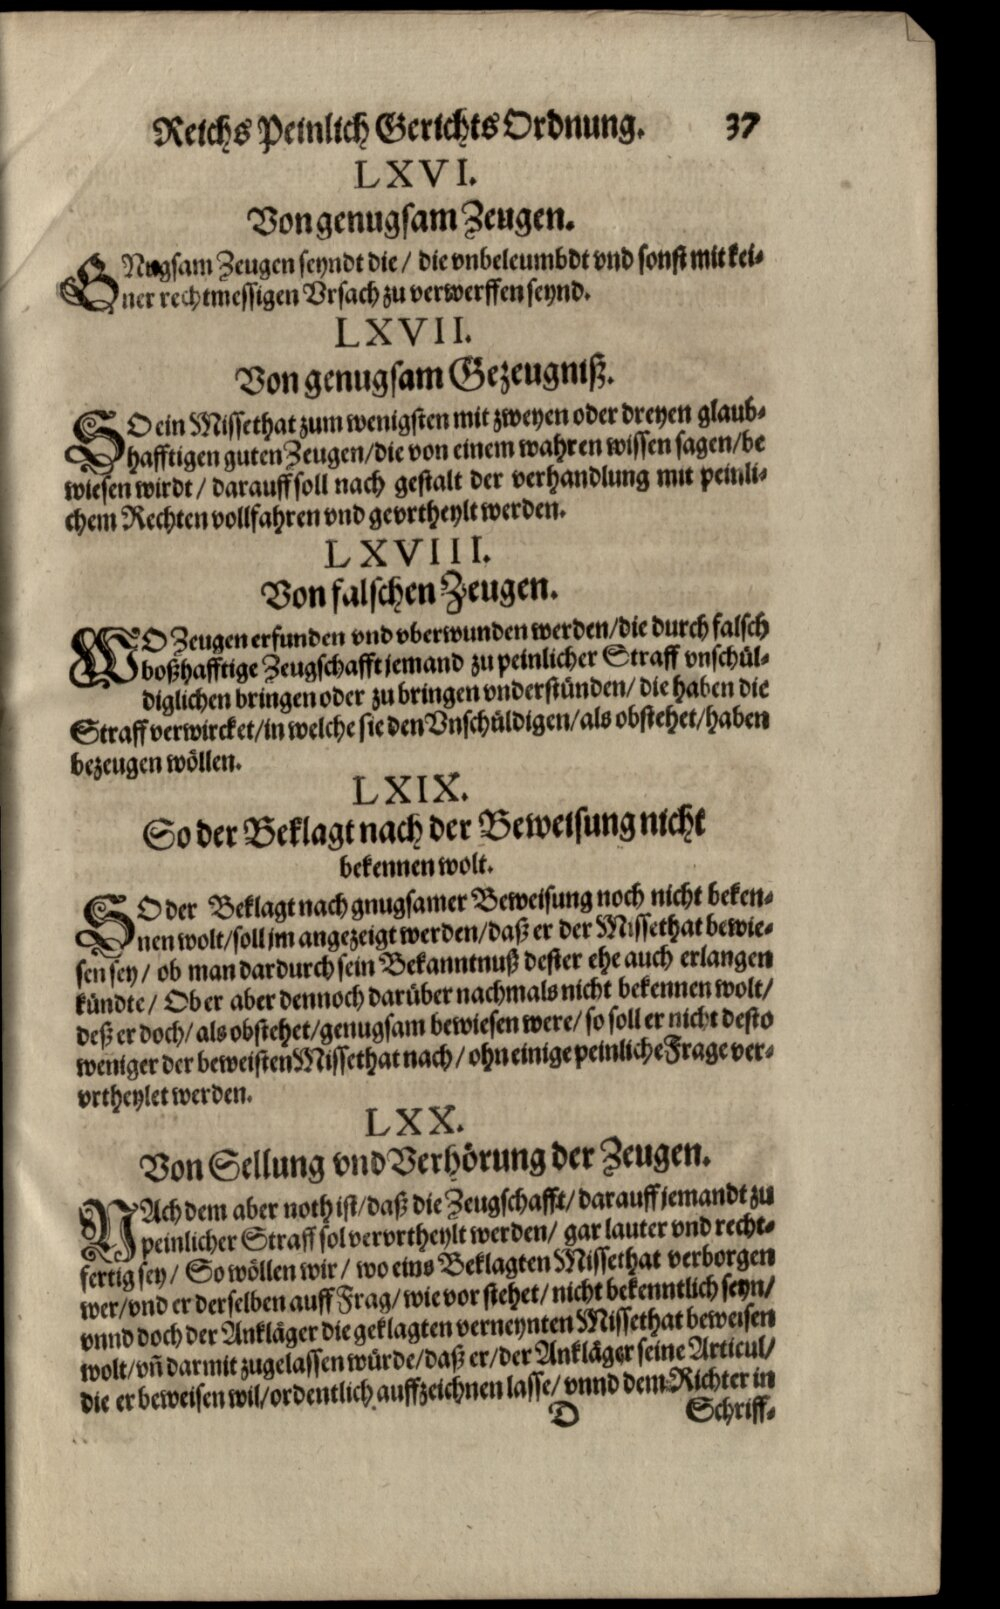 Reichs Peinlich Gerichts Ordnung. 37
LXVI.
Von genugsam Zeugen.
GNugsam Zeugen seyndt die / die vnbeleumbdt vnd sonst mit kei-
ner rechtmessigen Vrsach zu verwerffen seynd.
LXVII.
Von genugsam Gezeugniß.
SO ein Missethat zum wenigsten mit zweyen oder dreyen glaub-
hafftigen guten Zeugen / die von einem wahren wissen sagen / be
wiesen wirdt / darauff soll nach gestalt der verhandlung mit peinli-
chem Rechten vollfahren vnd gevrtheylt werden.
LXVIII.
Von falschen Zeugen.
WO Zeugen erfunden vnd vberwunden werden / die durch falsch
boßhafftige Zeugschafft jemand zu peinlicher Straff vnschül-
diglichen bringen oder zu bringen vnderstünden / die haben die
Straff verwircket / in welche sie den Vnschüldigen / als obstehet / haben
bezeugen wöllen.
LXIX.
So der Beklagt nach der Beweisung nicht
bekennen wolt.
SO der Beklagt nach gnugsamer Beweisung noch nicht beken-
nen wolt / soll jm angezeigt werden / daß er der Missethat bewie-
sen sey / ob man dardurch sein Bekanntnuß dester ehe auch erlangen
kündte / Ob er aber dennoch darüber nachmals nicht bekennen wolt /
deß er doch / als obstehet / genugsam bewiesen were / so soll er nicht desto
weniger der beweisten Missethat nach / ohn einige peinliche Frage ver-
vrtheylet werden.
LXX.
Von Sellung vnd Verhörung der Zeugen.
NAch dem aber noth ist / daß die Zeugschafft / darauff jemandt zu
peinlicher Straff sol vervrtheylt werden / gar lauter vnd recht-
fertig sey / So wöllen wir / wo eins Beklagten Missethat verborgen
wer / vnd er derselben auff Frag / wie vor stehet / nicht bekenntlich seyn /
vnnd doch der Ankläger die geklagten verneynten Missethat beweisen
wolt / vñ darmit zugelassen würde / daß er / der Ankläger seine Articul /
die er beweisen wil / ordentlich auffzeichnen lasse / vnnd dem Richter in
D Schriff-